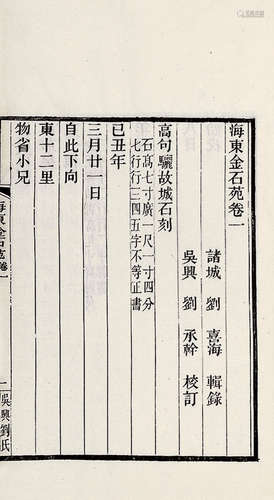 海東金石苑卷一
諸城 劉 喜海 輯錄
吳興 劉 承幹 校訂
高句驪故城石刻
石高七寸廣一尺一寸四分
七行行三四五字不等正書
己丑年
三月廿一日
自此下向
東十二里
物省小兄
海東金石苑卷一
一
吳興劉氏